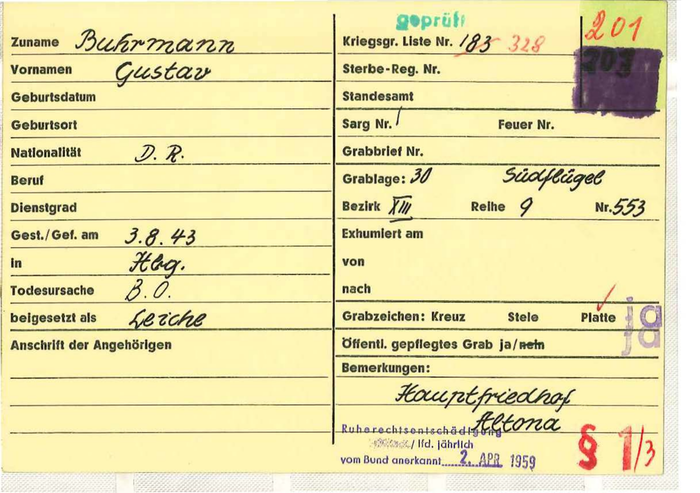 geprüft
201
203
Zuname Buhrmann
Vornamen Gustav
Geburtsdatum
Geburtsort
Nationalität D. R.
Beruf
Dienstgrad
Gest./Gef. am 3.8.43
in Hbg.
Todesursache B.O.
beigesetzt als Leiche
Anschrift der Angehörigen
Kriegsgr. Liste Nr. 183 328
Sterbe-Reg. Nr.
Standesamt
Sarg Nr. 1 Feuer Nr.
Grabbrief Nr.
Grablage: 30 Südflügel
Bezirk XIII Reihe 9 Nr. 553
Exhumiert am
von
nach
Grabzeichen: Kreuz Stele Platte ja
Öffentl. gepflegtes Grab ja/nein ja
Bemerkungen:
Hauptfriedhof
Altona
Ruherechtsentschädigung
/ lfd. jährlich
vom Bund anerkannt 2. APR 1959
§ 1/3